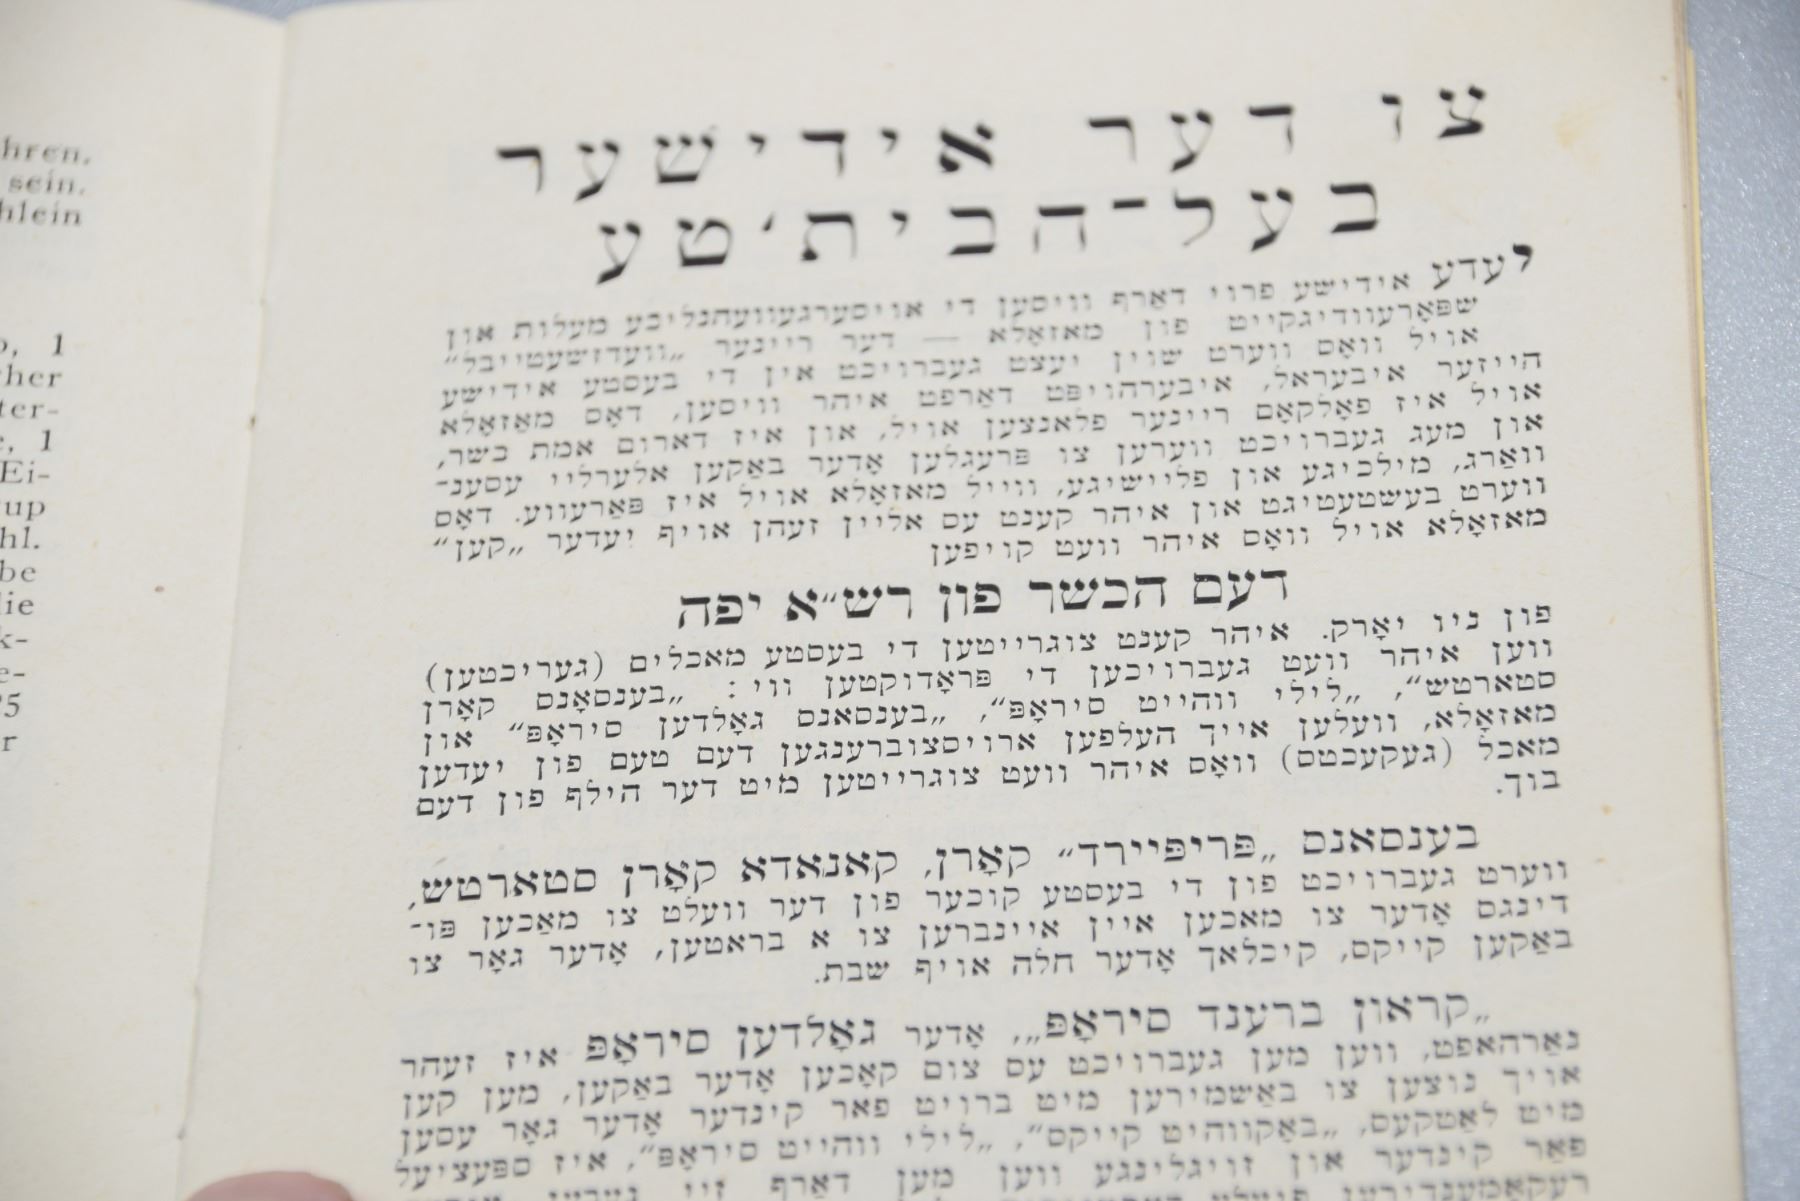 hren,
sein.
hlein
o, 1
cher
ter-
e, 1
Ei-
rup
hl.
be
lie
k-
e-
25
r
צו דער אידישער
בעל־הבית׳טע
יעדע אידישע פרוי דאַרף וויסען די אויסערגעוועהנליכע מעלות און
שפּאָרעוודיגקייט פון מאזאָלא — דער ריינער „וועדזשעטייבל״
אויל וואָס ווערט שוין יעצט געברויכט אין די בעסטע אידישע
הייזער איבעראל, איבערהויפּט דאַרפט איהר וויסען, דאָס מאַזאָלא
אויל איז פאָלקאָם ריינער פלאנצען אויל, און איז דארום אמת כשר,
און מעג געברויכט ווערען צו פּרעגלען אָדער באַקען אלערליי עסענ־
וואַרג, מילכיגע און פליישיגע, ווייל מאזאָלא אויל איז פּאַרעווע. דאָס
ווערט בעשטעטיגט און איהר קענט עס אליין זעהן אויף יעדער „קען״
מאזאָלא אויל וואָס איהר וועט קויפען
דעם הכשר פון רש״א יפה
פון ניו יאָרק. איהר קענט צוגרייטען די בעסטע מאכלים (געריכטען)
ווען איהר וועט געברויכען די פּראָדוקטען ווי: „בענסאָנס קאָרן
סטארטש״, „לילי ווהייט סיראָפּ״, „בענסאנס גאָלדען סיראָפּ״ און
מאזאָלא, וועלען אייך העלפען ארויסצוברענגען דעם טעם פון יעדען
מאכל (געקעכטס) וואָס איהר וועט צוגרייטען מיט דער הילף פון דעם
בוך.
בענסאנס „פּריפּיירד״ קאָרן, קאנאדא קאָרן סטארטש,
ווערט געברויכט פון די בעסטע קוכער פון דער וועלט צו מאַכען פּו־
דינגס אָדער צו מאכען איין איינברען צו א בראטען, אָדער גאָר צו
באַקען קייקס, קיכלאך אָדער חלה אויף שבת.
„קראון ברענד סיראָפּ„, אָדער גאָלדען סיראָפּ איז זעהר
נאַרהאפט, ווען מען געברויכט עס צום קאָכען אָדער באַקען, מען קען
אויך נוצען צו באַשמירען מיט ברויט פאר קינדער אָדער גאָר עסען
מיט לאַטקעס, „באָקווהיט קייקס״, „לילי ווהייט סיראָפּ״, איז ספּעציעל
פאַר קינדער און זויגלינגע ווען מען דאַרף זיי